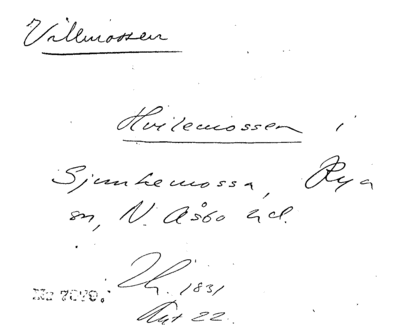 Villmossen
Hvilemossen i
Sjunkemossa, Rya
sn, N. Åsbo hd.
1831
Akt 22.